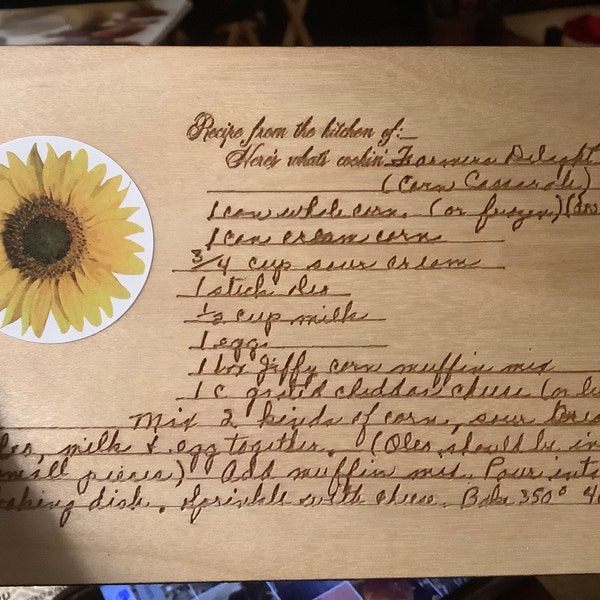 Recipe from the kitchen of:
Here's whats cookin' Farmers Delight
(Corn Casserole)
1 can whole corn (or frozen)
1 can cream corn
3/4 cup sour cream
1 stick oleo
1/2 cup milk
1 egg
1 box Jiffy corn muffin mix
1 c grated cheddar cheese (or
Mix 2 kinds of corn, sour
oleo, milk & egg together. (Oleo should be in
small pieces) Add muffin mix. Pour into
baking dish. Sprinkle with cheese. Bake 350°